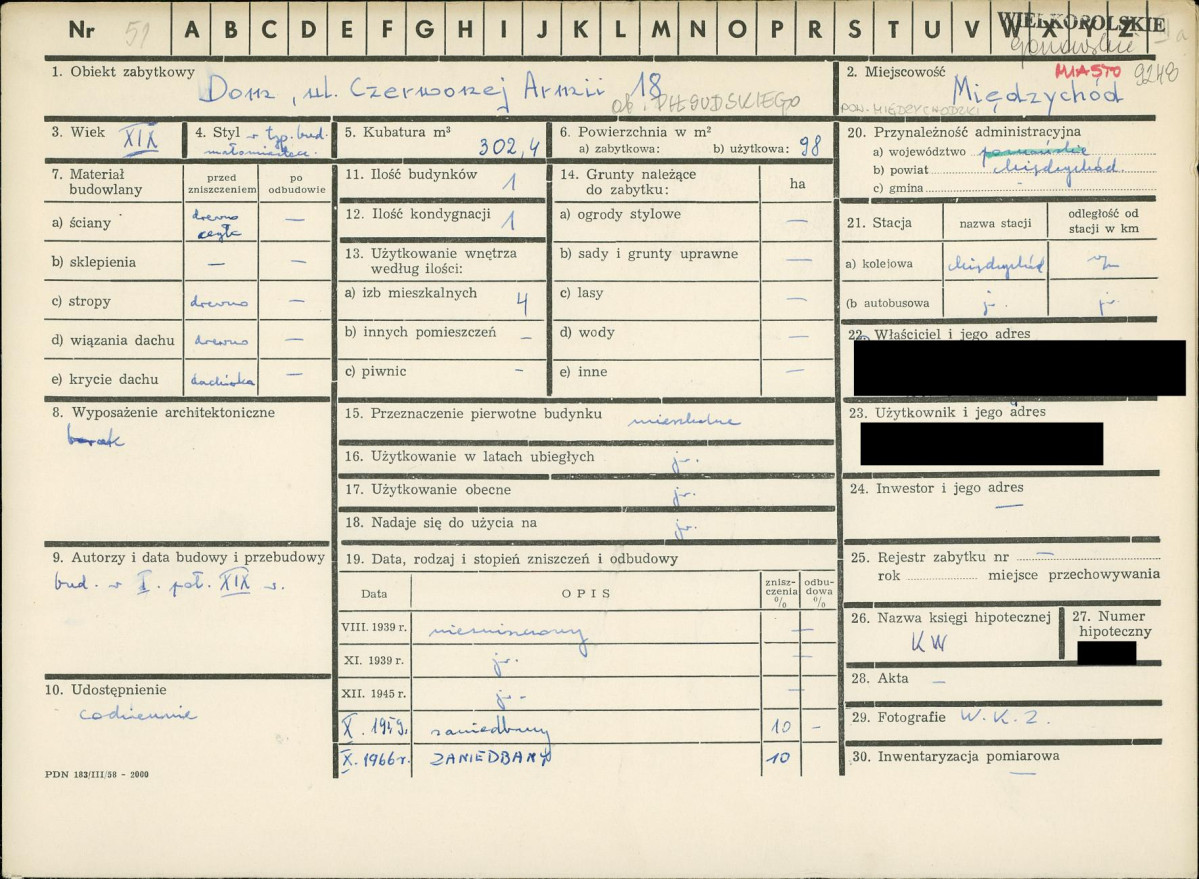 Nr 51 A B C D E F G H I J K L M N O P R S T U V W X Y Z
WIELKOPOLSKIE
gorzowskie
1. Obiekt zabytkowy
Dom, ul. Czerwonej Armii 18
ob. PIŁSUDSKIEGO
2. Miejscowość
MIASTO 9248
Międzychód
POW. MIĘDZYCHODZKI
3. Wiek XIX
4. Styl w typ. bud.
małomiastecz.
5. Kubatura m³
302,4
6. Powierzchnia w m²
a) zabytkowa: b) użytkowa: 98
20. Przynależność administracyjna
a) województwo poznańskie
b) powiat Międzychód
c) gmina -
7. Materiał budowlany
przed zniszczeniem
po odbudowie
a) ściany drewno cegła —
b) sklepienia — —
c) stropy drewno —
d) wiązania dachu drewno —
e) krycie dachu dachówka —
11. Ilość budynków 1
12. Ilość kondygnacji 1
13. Użytkowanie wnętrza
według ilości:
a) izb mieszkalnych 4
b) innych pomieszczeń -
c) piwnic -
14. Grunty należące
do zabytku:
ha
a) ogrody stylowe —
b) sady i grunty uprawne —
c) lasy —
d) wody —
e) inne —
21. Stacja
nazwa stacji
odległość od
stacji w km
a) kolejowa Międzychód
(b autobusowa j. jw.
22. Właściciel i jego adres
23. Użytkownik i jego adres
8. Wyposażenie architektoniczne
brak
15. Przeznaczenie pierwotne budynku mieszkalne
16. Użytkowanie w latach ubiegłych jw.
17. Użytkowanie obecne jw.
18. Nadaje się do użycia na jw.
24. Inwestor i jego adres
—
9. Autorzy i data budowy i przebudowy
bud. w I. poł. XIX w.
19. Data, rodzaj i stopień zniszczeń i odbudowy
Data
OPIS
znisz-
czenia
%
odbu-
dowa
%
VIII. 1939 r. nieruszony —
XI. 1939 r. jw. —
XII. 1945 r. jw. —
X. 1959. zaniedbany 10 -
X. 1966 r. ZANIEDBANY 10
25. Rejestr zabytku nr —
rok miejsce przechowywania
26. Nazwa księgi hipotecznej
KW
27. Numer
hipoteczny
28. Akta —
29. Fotografie W.K.Z.
30. Inwentaryzacja pomiarowa
—
10. Udostępnienie
codziennie
PDN 183/III/58 - 2000